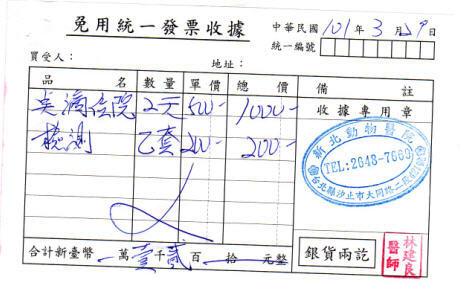 免用統一發票收據
中華民國101年3月29日
統一編號
買受人：
地址：
品名 數量 單價 總價 備註
點滴住院 2天 500- 1000-
收據專用章
檢測 乙套 200- 200-
新北動物醫院
TEL:2648-7666
台北縣汐止市大同路二段
合計新臺幣 萬壹千貳百 拾 元整
銀貨兩訖
林建良
醫師